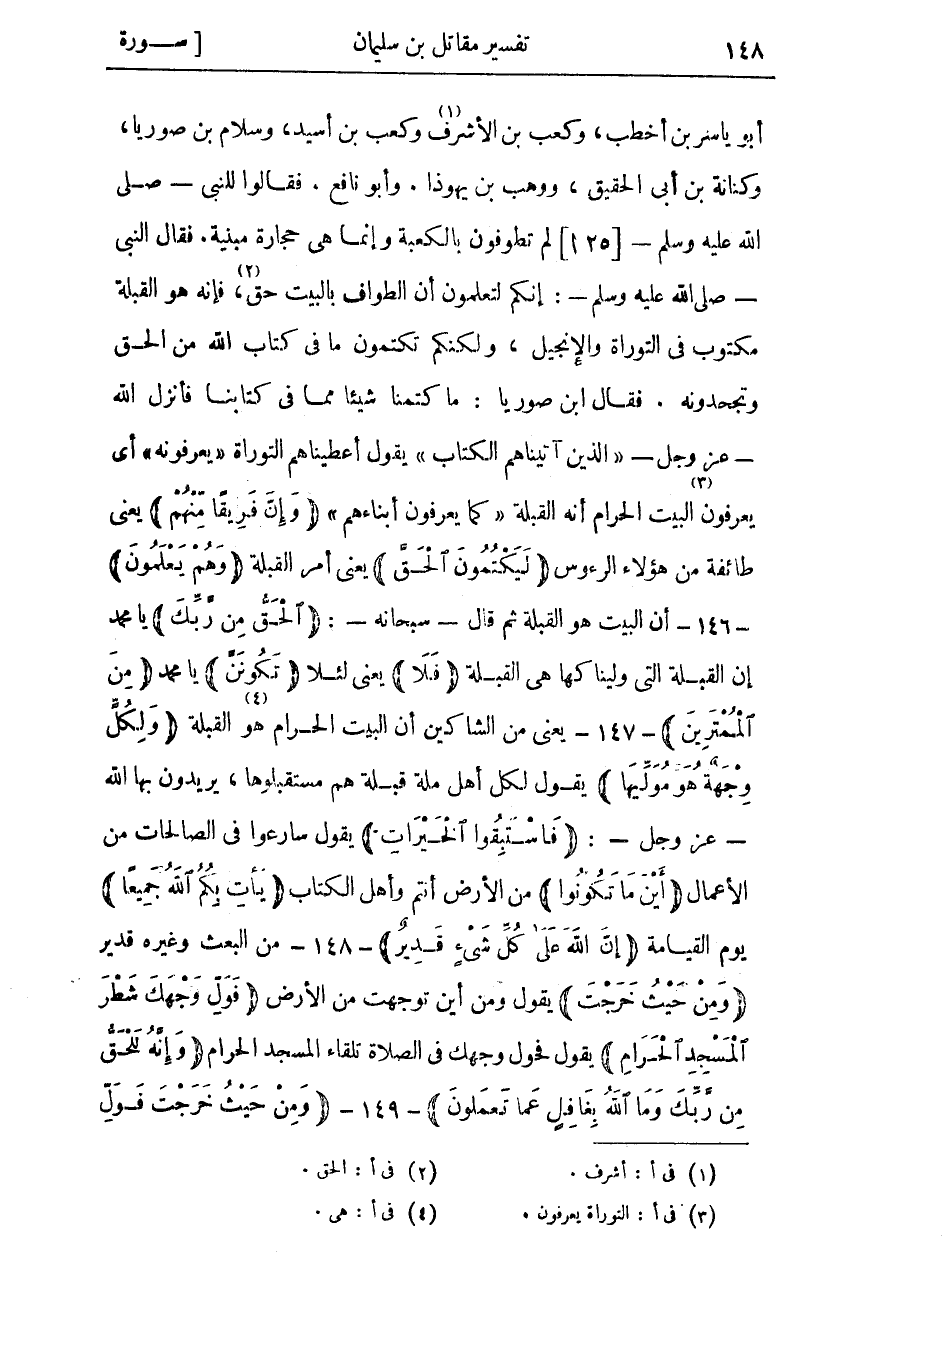 ١٤٨ تفسير مقاتل بن سليمان [ ســورة
أبو ياسر بن أخطب، وكعب بن الأشرف(١) وكعب بن أسيد، وسلام بن صوريا،
وكنانة بن أبى الحقيق ، ووهب بن يهوذا . وأبو نافع . فقالوا للنبى — صلى
الله عليه وسلم — [١٢٥] لم تطوفون بالكعبة وإنما هى حجارة مبنية. فقال النبى
— صلى الله عليه وسلم — : إنكم لتعلمون أن الطواف بالبيت حق(٢)، فإنه هو القبلة
مكتوب فى التوراة والإنجيل ، ولكنكم تكتمون ما فى كتاب الله من الحق
وتجحدونه . فقال ابن صوريا : ما كتمنا شيئا مما فى كتابنا فأنزل الله
— عز وجل — « الذين آتيناهم الكتاب » يقول أعطيناهم التوراة «يعرفونه»(٣) أى
يعرفون البيت الحرام أنه القبلة « كما يعرفون أبناءهم » ﴿ وَإِنَّ فَرِيقًا مِّنْهُمْ ﴾ يعنى
طائفة من هؤلاء الرءوس ﴿ لَيَكْتُمُونَ ٱلْحَقَّ ﴾ يعنى أمر القبلة ﴿ وَهُمْ يَعْلَمُونَ ﴾
– ١٤٦ – أن البيت هو القبلة ثم قال — سبحانه — : ﴿ ٱلْحَقُّ مِن رَّبِّكَ ﴾ يا محمد
إن القبلة التى وليناكها هى القبلة ﴿ فَلَا ﴾ يعنى لئلا ﴿ تَكُونَنَّ ﴾ يا محمد ﴿ مِنَ
ٱلْمُمْتَرِينَ ﴾ – ١٤٧ – يعنى من الشاكين أن البيت الحرام هو(٤) القبلة ﴿ وَلِكُلٍّ
وِجْهَةٌ هُوَ مُوَلِّيهَا ﴾ يقول لكل أهل ملة قبلة هم مستقبلوها ، يريدون بها الله
— عز وجل — : ﴿ فَاسْتَبِقُوا ٱلْخَيْرَاتِ ﴾ يقول سارعوا فى الصالحات من
الأعمال ﴿ أَيْنَ مَا تَكُونُوا ﴾ من الأرض أنتم وأهل الكتاب ﴿ يَأْتِ بِكُمُ ٱللَّهُ جَمِيعًا ﴾
يوم القيامة ﴿ إِنَّ اللَّهَ عَلَىٰ كُلِّ شَىْءٍ قَدِيرٌ ﴾ – ١٤٨ – من البعث وغيره قدير
﴿ وَمِنْ حَيْثُ خَرَجْتَ ﴾ يقول ومن أين توجهت من الأرض ﴿ فَوَلِّ وَجْهَكَ شَطْرَ
ٱلْمَسْجِدِ ٱلْحَرَامِ ﴾ يقول فحول وجهك فى الصلاة تلقاء المسجد الحرام ﴿ وَإِنَّهُ لَلْحَقُّ
مِن رَّبِّكَ وَمَا ٱللَّهُ بِغَافِلٍ عَمَّا تَعْمَلُونَ ﴾ – ١٤٩ – ﴿ وَمِنْ حَيْثُ خَرَجْتَ فَوَلِّ
(١) فى أ : أشرف . (٢) فى أ : الحق .
(٣) فى أ : التوراة يعرفون . (٤) فى أ : هى .